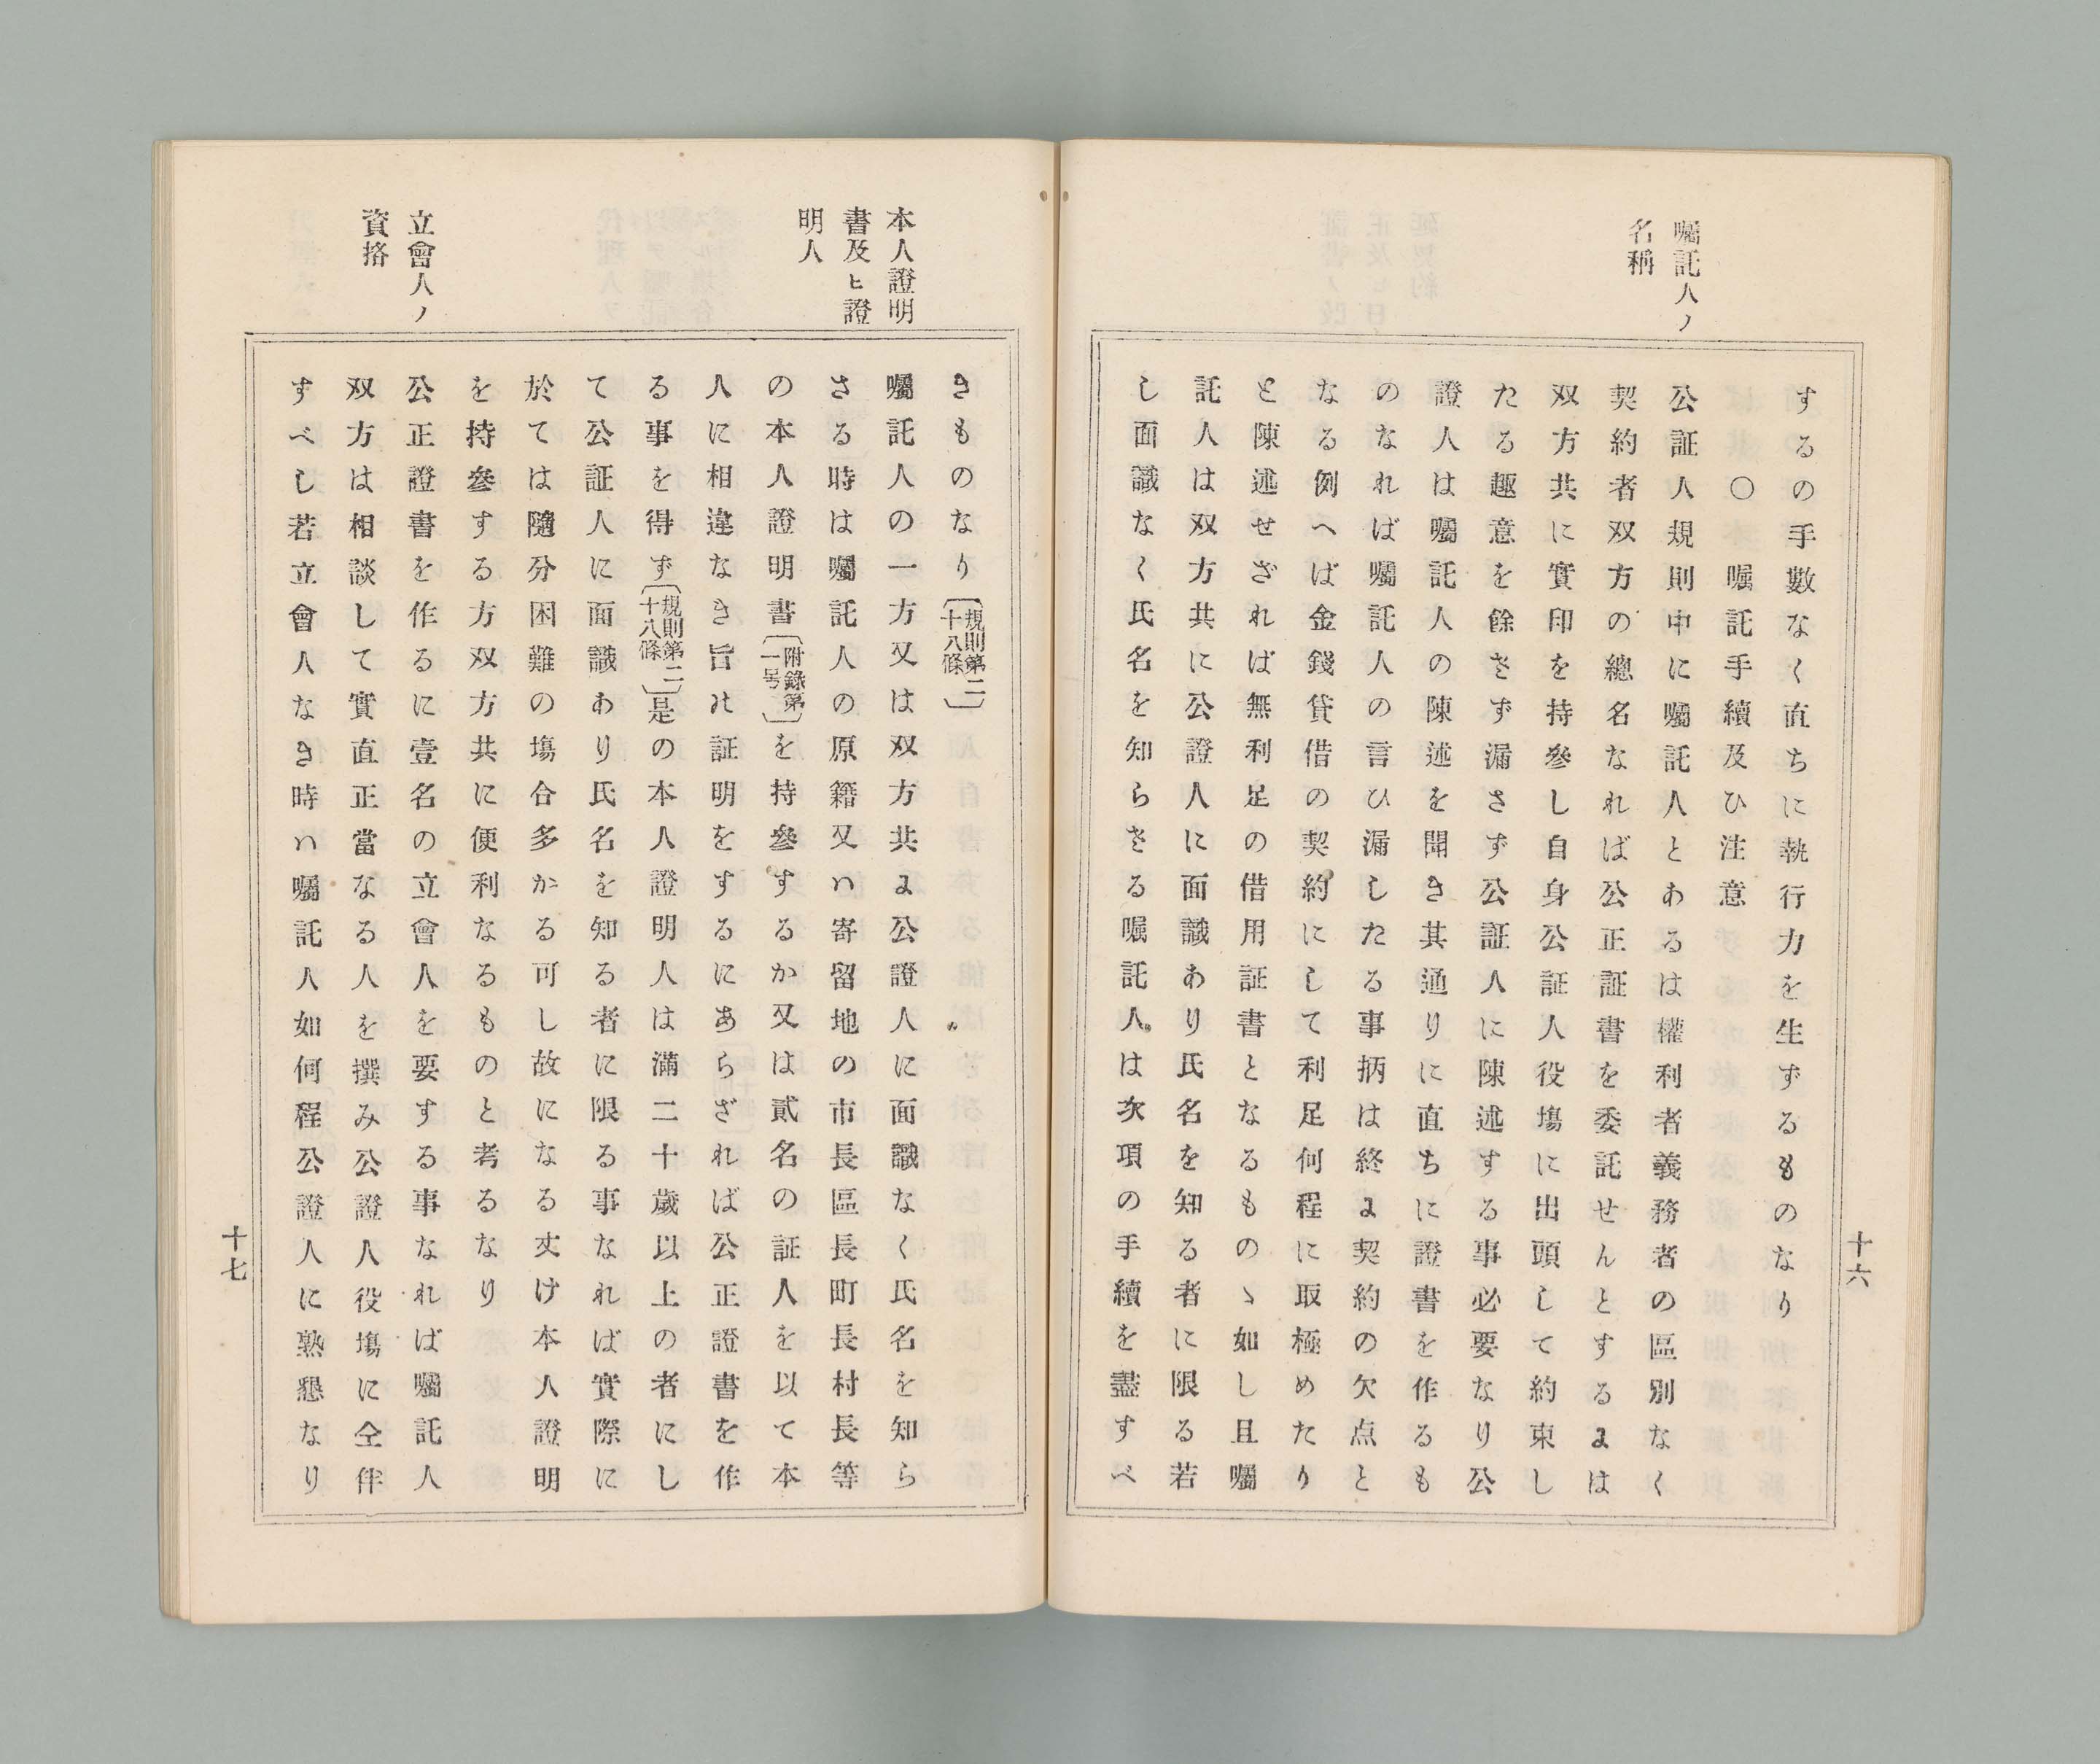 囑託人ノ
名稱
するの手數なく直ちに執行力を生ずるものなり
〇囑託手續及ひ注意
公証人規則中に囑託人とあるは權利者義務者の區別なく
契約者双方の總名なれば公正証書を委託せんとするには
双方共に實印を持參し自身公証人役塲に出頭して約束し
たる趣意を餘さず漏さず公証人に陳述する事必要なり公
證人は囑託人の陳述を聞き其通りに直ちに證書を作るも
のなれば囑託人の言ひ漏したる事抦は終に契約の欠点と
なる例へば金錢貸借の契約にして利足何程に取極めたり
と陳述せざれば無利足の借用証書となるものゝ如し且囑
託人は双方共に公證人に面識あり氏名を知る者に限る若
し面識なく氏名を知らざる囑託人は次項の手續を盡すべ
十六
本人證明
書及ヒ證
明人
立會人ノ
資格
きものなり〔規則第二十八條〕
囑託人の一方又は双方共に公證人に面識なく氏名を知ら
さる時は囑託人の原籍又ハ寄留地の市長區長町長村長等
の本人證明書〔附錄第一号〕を持參するか又は貳名の証人を以て本
人に相違なき旨の証明をするにあらざれば公正證書を作
る事を得ず〔規則第二十八條〕是の本人證明人は滿二十歲以上の者にし
て公証人に面識あり氏名を知る者に限る事なれば實際に
於ては隨分困難の塲合多かる可し故になる丈け本人證明
を持參する方双方共に便利なるものと考るなり
公正證書を作るに壹名の立會人を要する事なれば囑託人
双方は相談して實直正當なる人を撰み公證人役塲に仝伴
すべし若立會人なき時ハ囑託人如何程公證人に熟懇なり
十七